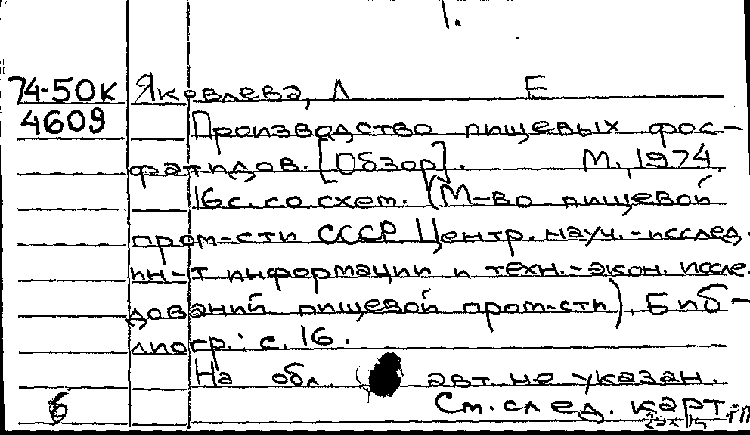 1.
74-50к Яковлева, Л Е
4609 Производство пищевых фос-
фатидов. [Обзор]. М., 1974.
16с. со схем. (М-во пищевой
пром-сти СССР. Центр. науч.-исслед.
ин-т информации и техн.-экон. иссле-
дований пищевой пром-сти). Биб-
лиогр.: с. 16.
На обл. авт. не указан.
См. след. карт.
б